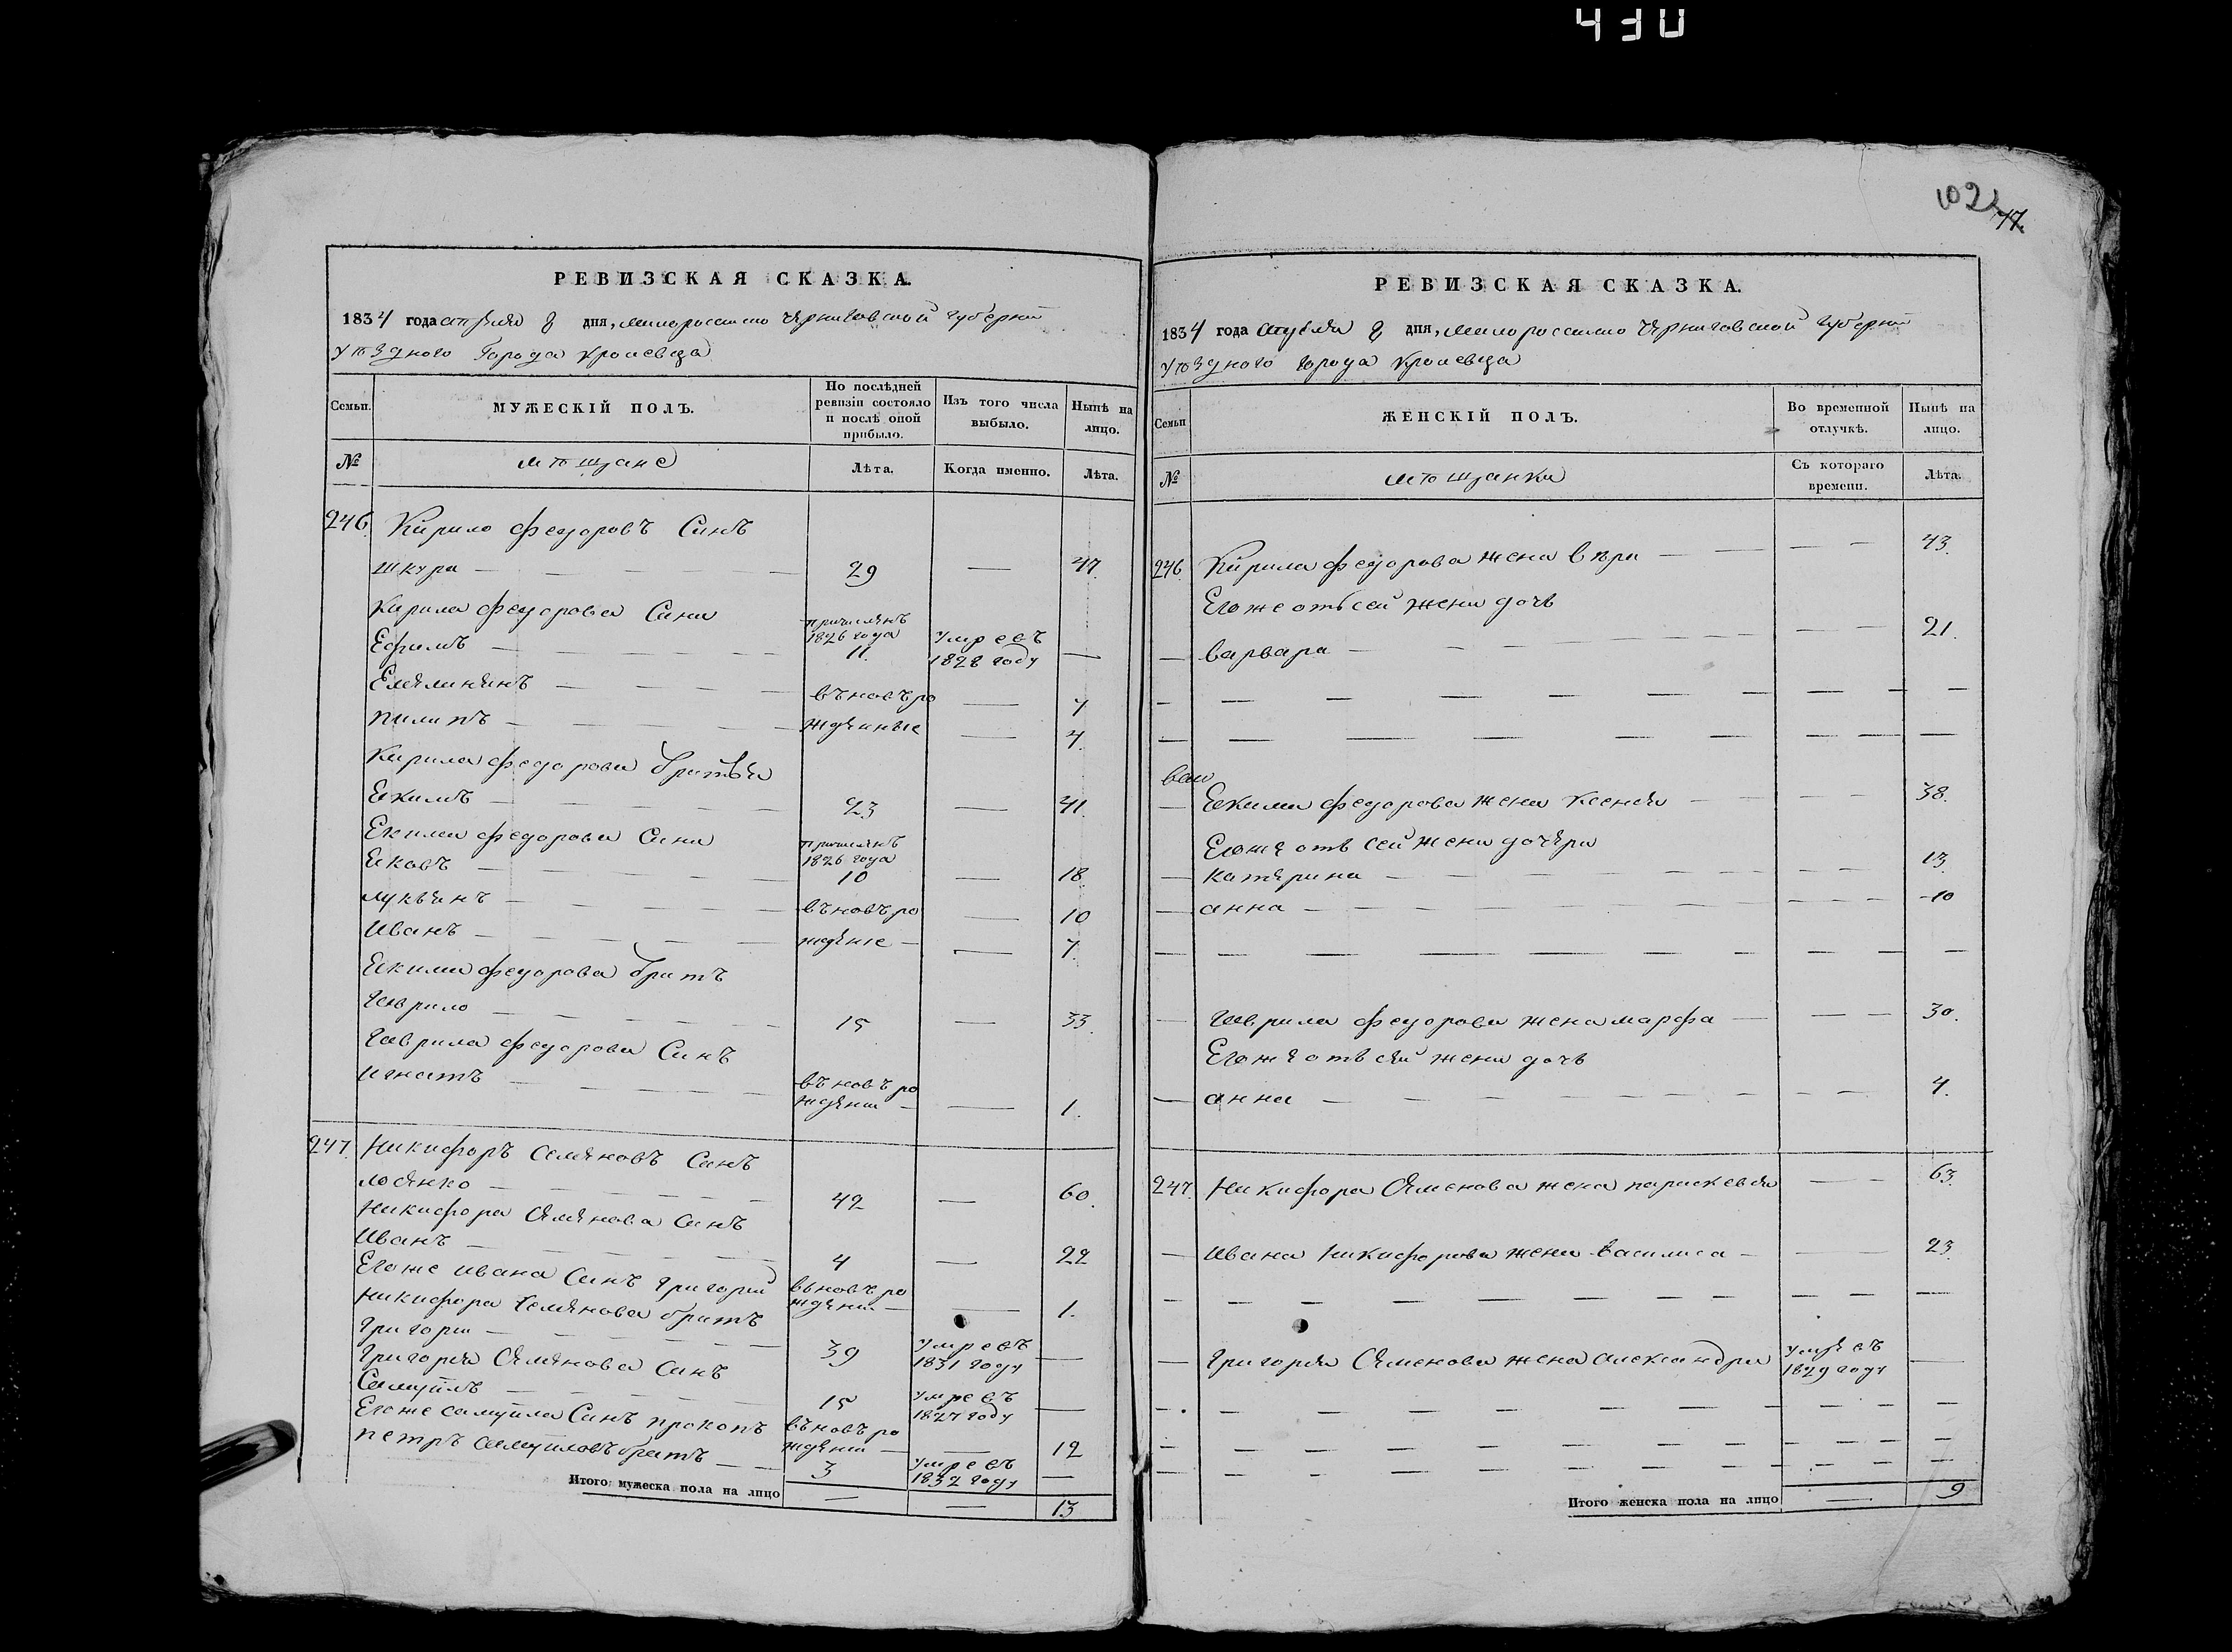 430
102
77.
РЕВИЗСКАЯ СКАЗКА.
1834 года апреля 8 дня, малороссийско Черниговской губернии
уѣздного Города Кролевца
Семьи.
МУЖЕСКІЙ ПОЛЪ.
По послѣдней ревизіи состояло и послѣ оной прибыло.
Изъ того числа выбыло.
Нынѣ на лицо.
№
мѣщане
Лѣта.
Когда именно.
Лѣта.
246. Кирило федоровъ Синъ
шкура — 29 — 47.
Кирила федорова Сини
Ефимъ — причисленъ 1826 года 11. умре въ 1828 году —
Емелиянъ — въновъ ро — 7
пилипъ — жденные — 4.
Кирила федорова братья
Екимъ — 23 — 41.
Екима федорова Сини
Яковъ — причисленъ 1826 года 10 — 18.
лукъянъ — въновъ ро — 10
Иванъ — ждение — 7
Екима федорова братъ
Гаврило — 15 — 33.
Гаврила федорова Синъ
игнатъ — въновъ ро
ждени — — 1.
247. Никифоръ Семеновъ Синъ
— 42 — 60.
Никифора Семенова Синъ
Иванъ — 4 — 22
Егоже ивана Синъ григорий вновъ ро
ждени — — 1.
Никифора Семенова братъ
григори — 39 умре въ 1831 году —
григория Семенова Синъ
Самуилъ — 15 умре въ 1827 году —
Егоже самуила Синъ прокопъ въновъ ро
ждени — — 12
петръ самуиловъ братъ — 3 умре въ 1832 году —
Итого мужеска пола на лицо — — 13
РЕВИЗСКАЯ СКАЗКА.
1834 года апреля 8 дня, малороссийско Черниговской губернии
уѣздного города Кролевца
Семьи
ЖЕНСКІЙ ПОЛЪ.
Во временной отлучкѣ.
Нынѣ на лицо.
№
мѣщанки
Съ котораго времени.
Лѣта.
246. Кирила федорова жена вѣра — — 43.
Егоже отъ сей жени дочь
— варвара — — 21.
— Екима федорова жена ксения — — 38.
Егоже отъ сей жени дочери
— катерина — — 13.
— анна — — 10
— Гаврила федорова жена марфа — — 30.
Егоже отъ сей жени дочь
— анна — — 4.
247. Никифора Семенова жена параскевия — 63.
— Ивана Никифорова жена василиса — — 23.
— григория Семенова жена александра умре въ 1829 году —
Итого женска пола на лицо — 9